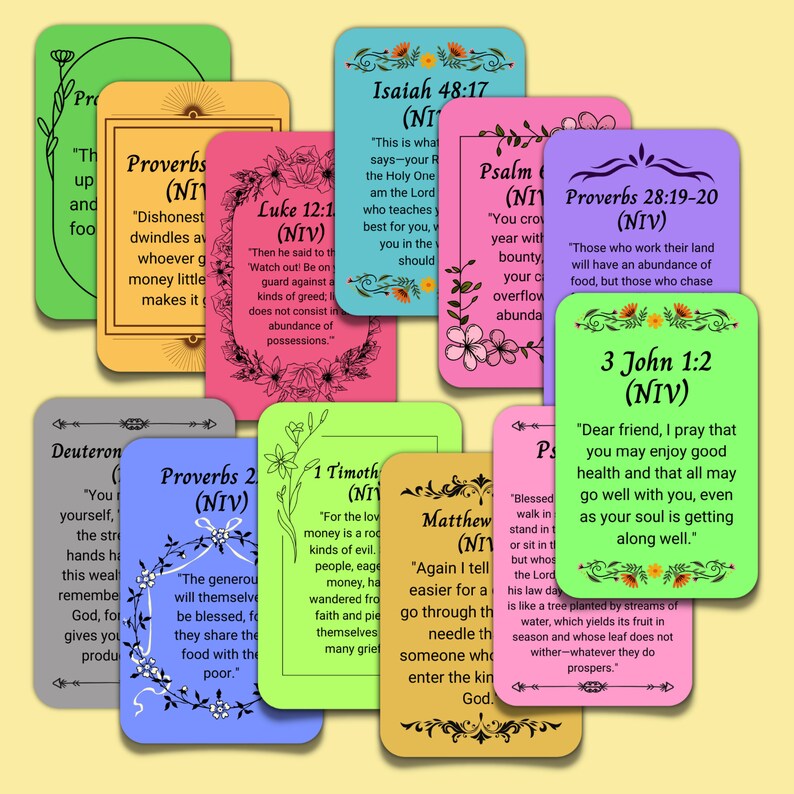 Pro
"Th
up
and
foo
Proverbs
(NIV
"Dishonest
dwindles aw
whoever g
money little
makes it g
Luke 12:1
(NIV)
"Then he said to th
'Watch out! Be on y
guard against a
kinds of greed; li
does not consist in a
abundance of
possessions.'"
Isaiah 48:17
(NIV
"This is what
says—your R
the Holy One
am the Lord
who teaches y
best for you, w
you in the w
should
Psalm 6
(NIV
"You crow
year with
bounty,
your ca
overflow
abunda
Proverbs 28:19-20
(NIV)
"Those who work their land
will have an abundance of
food, but those who chase
3 John 1:2
(NIV)
"Dear friend, I pray that
you may enjoy good
health and that all may
go well with you, even
as your soul is getting
along well."
Deuteron
(
"You m
yourself, "
the stre
hands ha
this wealt
remembe
God, for
gives you
produ
Proverbs 2
(NIV)
"The generou
will themselve
be blessed, fo
they share the
food with the
poor."
1 Timoth
(NIV
"For the lov
money is a roo
kinds of evil.
people, eage
money, ha
wandered fro
faith and pie
themselves
many grief
Matthew
(NIV
"Again I tell
easier for a c
go through th
needle tha
someone who
enter the kin
God.
Ps
"Blessed
walk in s
stand in t
or sit in th
but whos
the Lord
his law day
is like a tree planted by streams of
water, which yields its fruit in
season and whose leaf does not
wither—whatever they do
prospers."